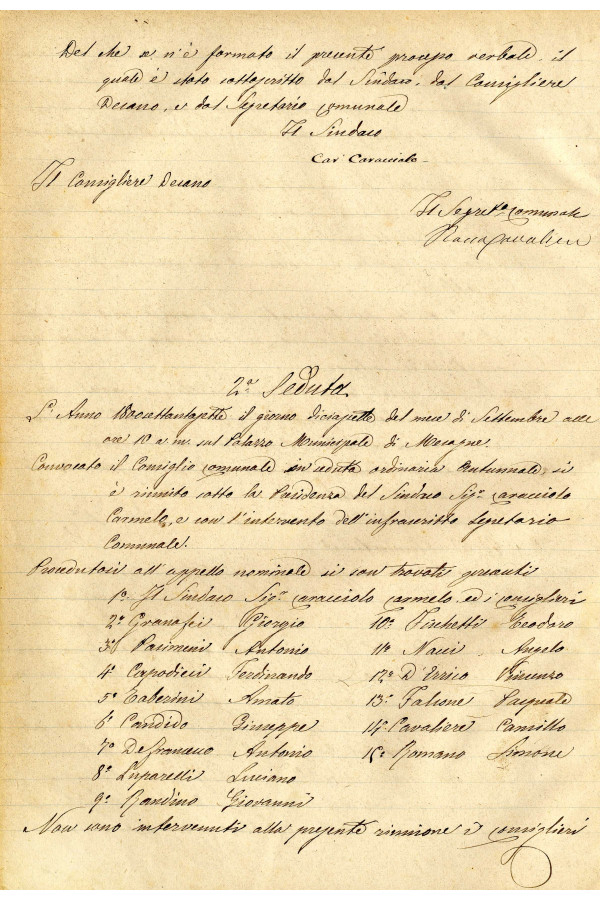 Del che se n'è formato il presente processo verbale, il
quale è stato sottoscritto dal Sindaco, dal Consigliere
Decano, e dal Segretario Comunale
Il Sindaco
Car Caracciolo
Il Consigliere Decano
Il Segret.o Comunale
Cavaliere
2.a Seduta
L'Anno 1800settantasette il giorno diciassette del mese di Settembre alle
ore 10 a m. sul Palazzo Municipale di Mesagne.
Convocato il Consiglio Comunale in seduta ordinaria Autunnale si
è riunito sotto la Presidenza del Sindaco Sig.r Caracciolo
Carmelo, e con l'intervento dell'infrascritto Segretario
Comunale.
Procedutosi all'appello nominale si son trovati presenti
1.o Il Sindaco Sig.r Caracciolo Carmelo ed i consiglieri
2.o Granafei Giorgio 10.o Tichetti Teodoro
3.o Pasimeni Antonio 11.o Nacci Angelo
4.o Capodieci Ferdinando 12.o D'Errico Vincenzo
5.o Taberini Amato 13.o Falcone Pasquale
6.o Candido Giuseppe 14.o Cavaliere Camillo
7.o Defrancesco Antonio 15.o Romano Simone
8.o Luparelli Luciano
9.o Randino Giovanni
Non sono intervenuti alla presente riunione i consiglieri